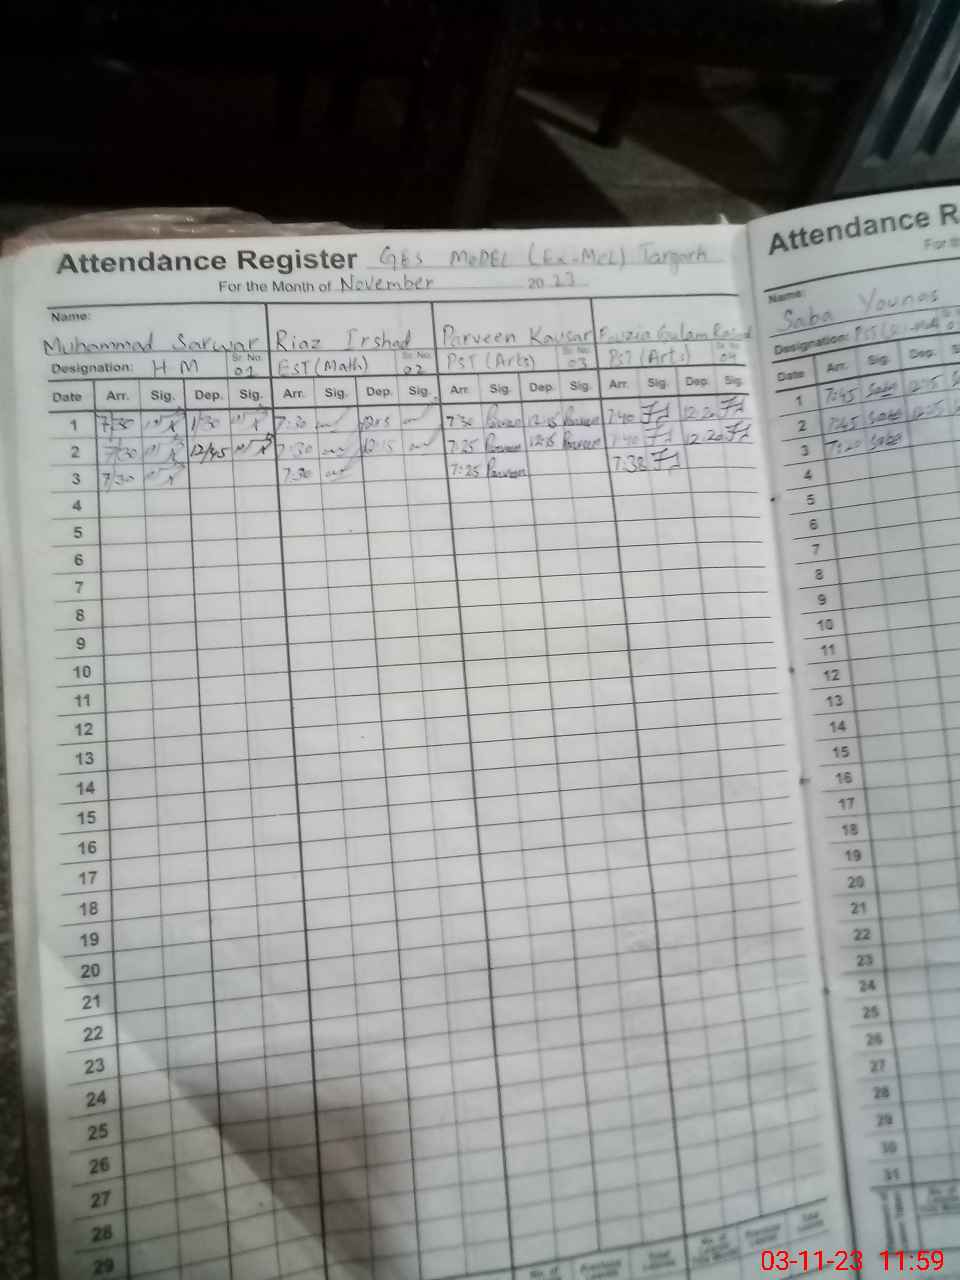 Attendance Register GES MODEL (Ex-MCL) Targarh
For the Month of November 2023
Name:
Muhammad Sarwar Riaz Irshad Parveen Kausar Fouzia Gulam Rasool
Designation: H M Sr. No. 01 EST (Math) Sr. No. 02 PST (Arts) Sr. No. 03 PST (Arts) Sr. No. 04
Date Arr. Sig. Dep. Sig. Arr. Sig. Dep. Sig. Arr. Sig. Dep. Sig. Arr. Sig. Dep. Sig.
1 7/30 1/30 7:30 7:30 Parveen 12:15 Parveen 7:40 12:20
2 7/30 12/45 7:30 12:15 7:25 Parveen 12:15 Parveen 7:40 12:20
3 7/30 7:30 7:25 Parveen 7:38
4
5
6
7
8
9
10
11
12
13
14
15
16
17
18
19
20
21
22
23
24
25
26
27
28
29
Attendance R
For th
Name:
Saba Younas
Designation:
Date Arr. Sig. Dep. S
1 7:45 Saba 12:15
2 7:45 Saba
3 7:20 Saba
4
5
6
7
8
9
10
11
12
13
14
15
16
17
18
19
20
21
22
23
24
25
26
27
28
29
30
31
03-11-23 11:59